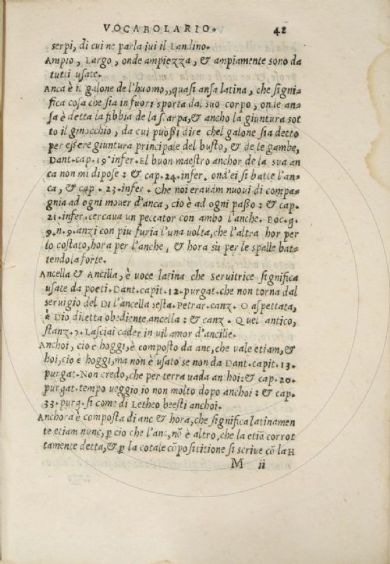 VOCABOLARIO. 42
serpi, di cui ne parla iui il Landino.
Ampio, Largo, onde ampiezza, & ampiamente sono da
tutti usate.
Anca è il galone de l'huomo, quasi ansa latina, che signifi
ca cosa che sia in fuori sporta dal suo corpo, onde an-
sa è detta la fibbia de la scarpa, & ancho la giuntura sot
to il ginocchio, da cui puossi dire che'l galone sia detto
per essere giuntura principale del busto, & de le gambe,
Dant. cap. 19. infer. El buon maestro anchor de la sua an
ca non mi dipose: & cap. 24. infer. ond'ei si batte l'an-
ca, & cap. 23. infer. Che noi erauam nuoui di compa-
gnia ad ogni mouer d'anca, cio è ad ogni passo: & cap.
21. infer. cercaua un peccator con ambo l'anche. Boc. g.
9. n. 9. anzi con piu furia l'una uolta, che l'altra hor per
lo costato, hora per l'anche, & hora sù per le spalle bat-
tendola forte.
Ancella & Ancilla, è uoce latina che Seruitrice significa
usate da poeti. Dant. capit. 12. purgat. che non torna dal
seruigio del Dì l'ancella sesta. Petrar. canz. O aspettata,
è Dio diletta obediente ancella: & canz. Quel antico,
stanz. 7. Lasciai cader in uil amor d'ancille.
Anchoi, cio è hoggi, è composto da anc, che uale etiam, &
hoi, cio è hoggi, ma non è usato se non da Dant. capit. 13.
purgat. Non credo, che per terra uada an hoi: & cap. 20.
purgat. tempo ueggio io non molto dopo anchoi: & cap.
33. purg. si come di Letheo beesti anchoi.
Anchora è composta di anc & hora, che significa latinamen
te etiam nunc, ꝑ cio che l'anc, nō è altro, che la etiā corrot
tamente detta, & ꝑ la cotale cōpositione si scriue cō la H
M ii